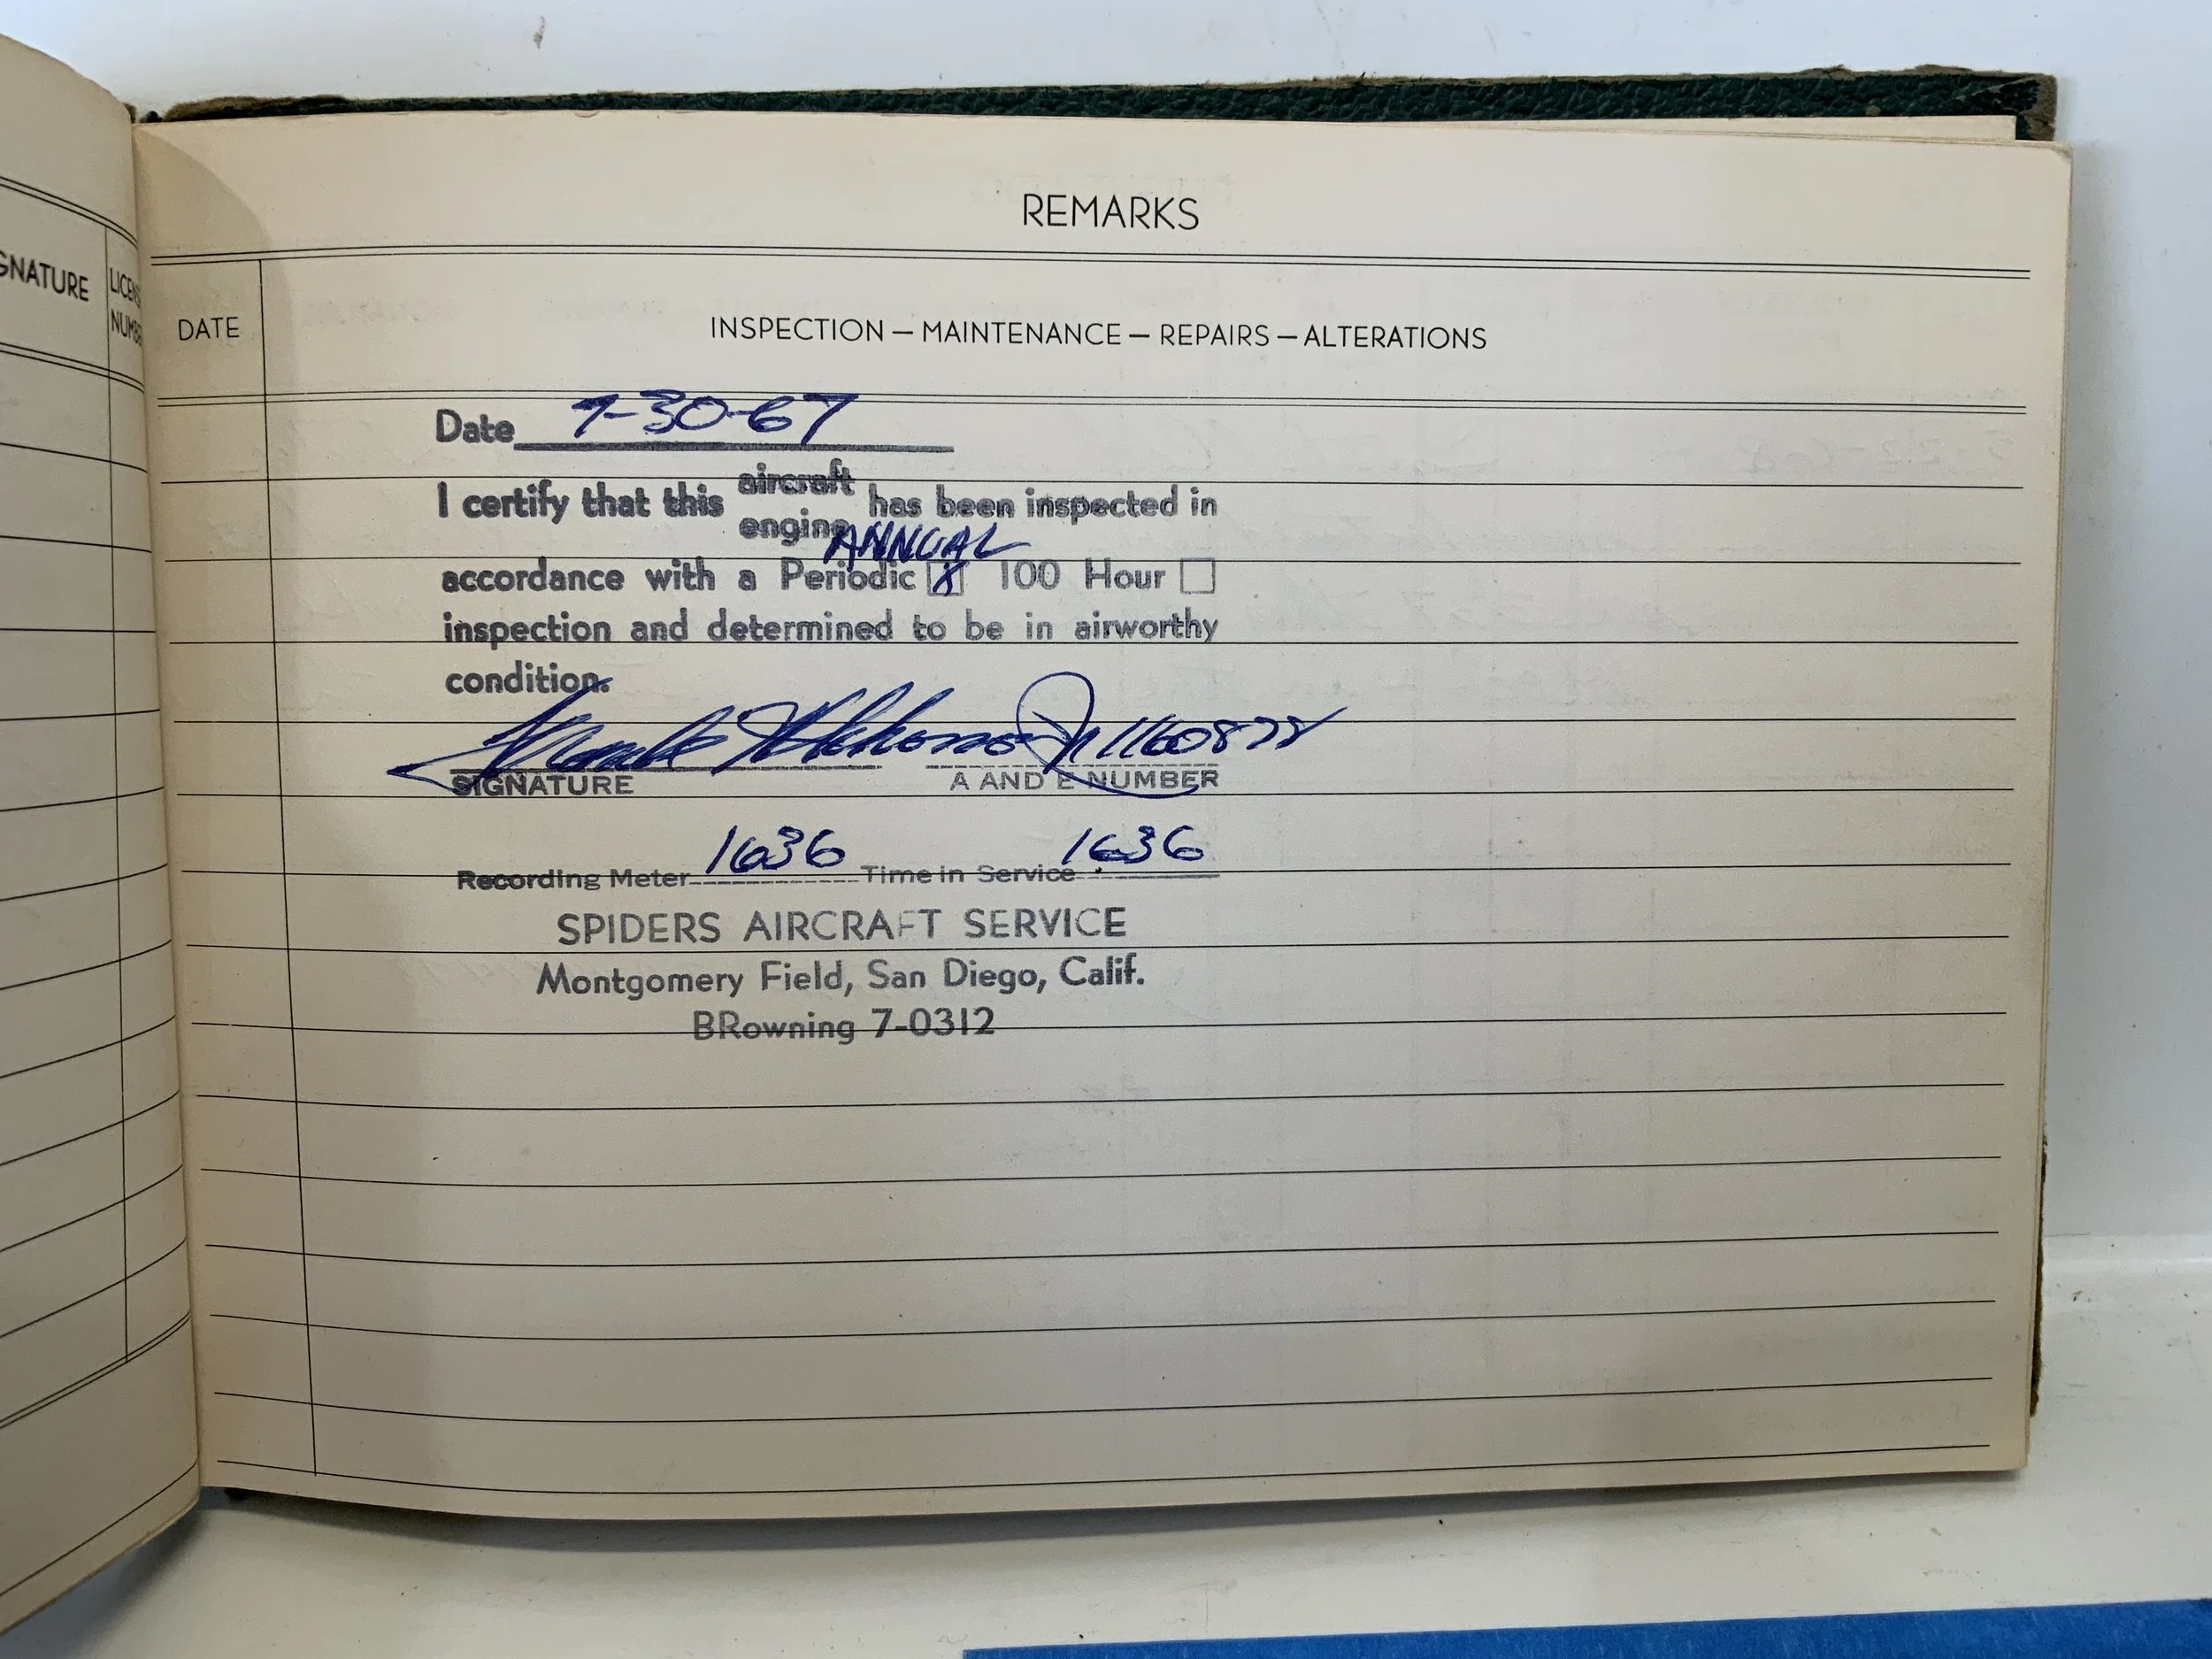 GNATURE
LICENS
NUMBE
REMARKS
DATE
INSPECTION — MAINTENANCE — REPAIRS — ALTERATIONS
Date 7-30-67
I certify that this aircraft engine has been inspected in
ANNUAL
accordance with a Periodic X 100 Hour
inspection and determined to be in airworthy
condition.
1160878
SIGNATURE A AND E NUMBER
Recording Meter 1636 Time in Service 1636
SPIDERS AIRCRAFT SERVICE
Montgomery Field, San Diego, Calif.
BRowning 7-0312